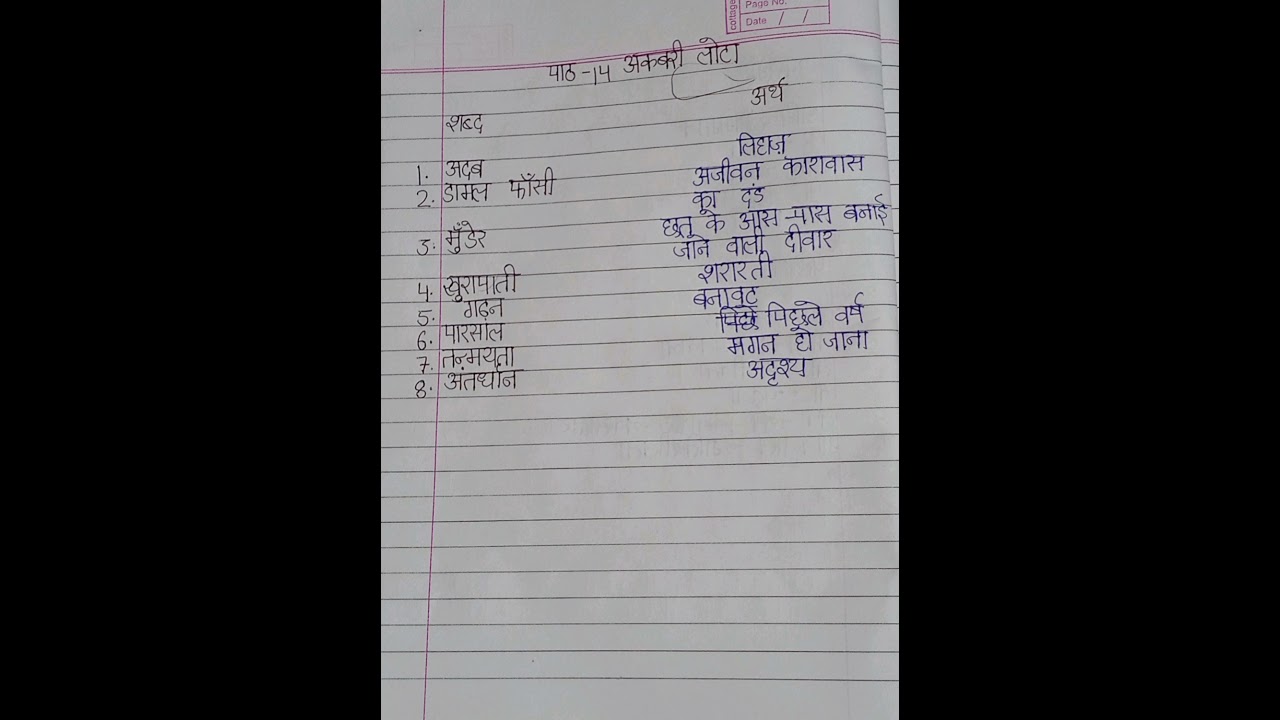 cottage
Page No.
Date / /
पाठ -14 अकबरी लोटा
शब्द अर्थ
1. अदब लिहाज़
2. डामल फाँसी अजीवन कारावास
का दंड
3. मुँडेर छत के आस-पास बनाई
जाने वाली दीवार
4. खुरापाती शरारती
5. गढ़न बनावट
6. पारसाल पिछले वर्ष
7. तन्मयता मगन हो जाना
8. अंतर्धान अदृश्य